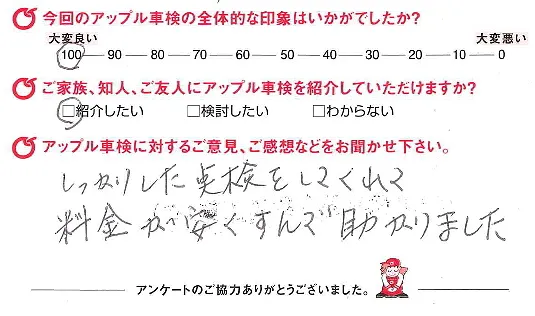 今回のアップル車検の全体的な印象はいかがでしたか?
大変良い 大変悪い
100 — 90 — 80 — 70 — 60 — 50 — 40 — 30 — 20 — 10 — 0
ご家族、知人、ご友人にアップル車検を紹介していただけますか?
□紹介したい □検討したい □わからない
アップル車検に対するご意見、ご感想などをお聞かせ下さい。
しっかりした点検をしてくれて
料金が安くすんで助かりました
アンケートのご協力ありがとうございました。